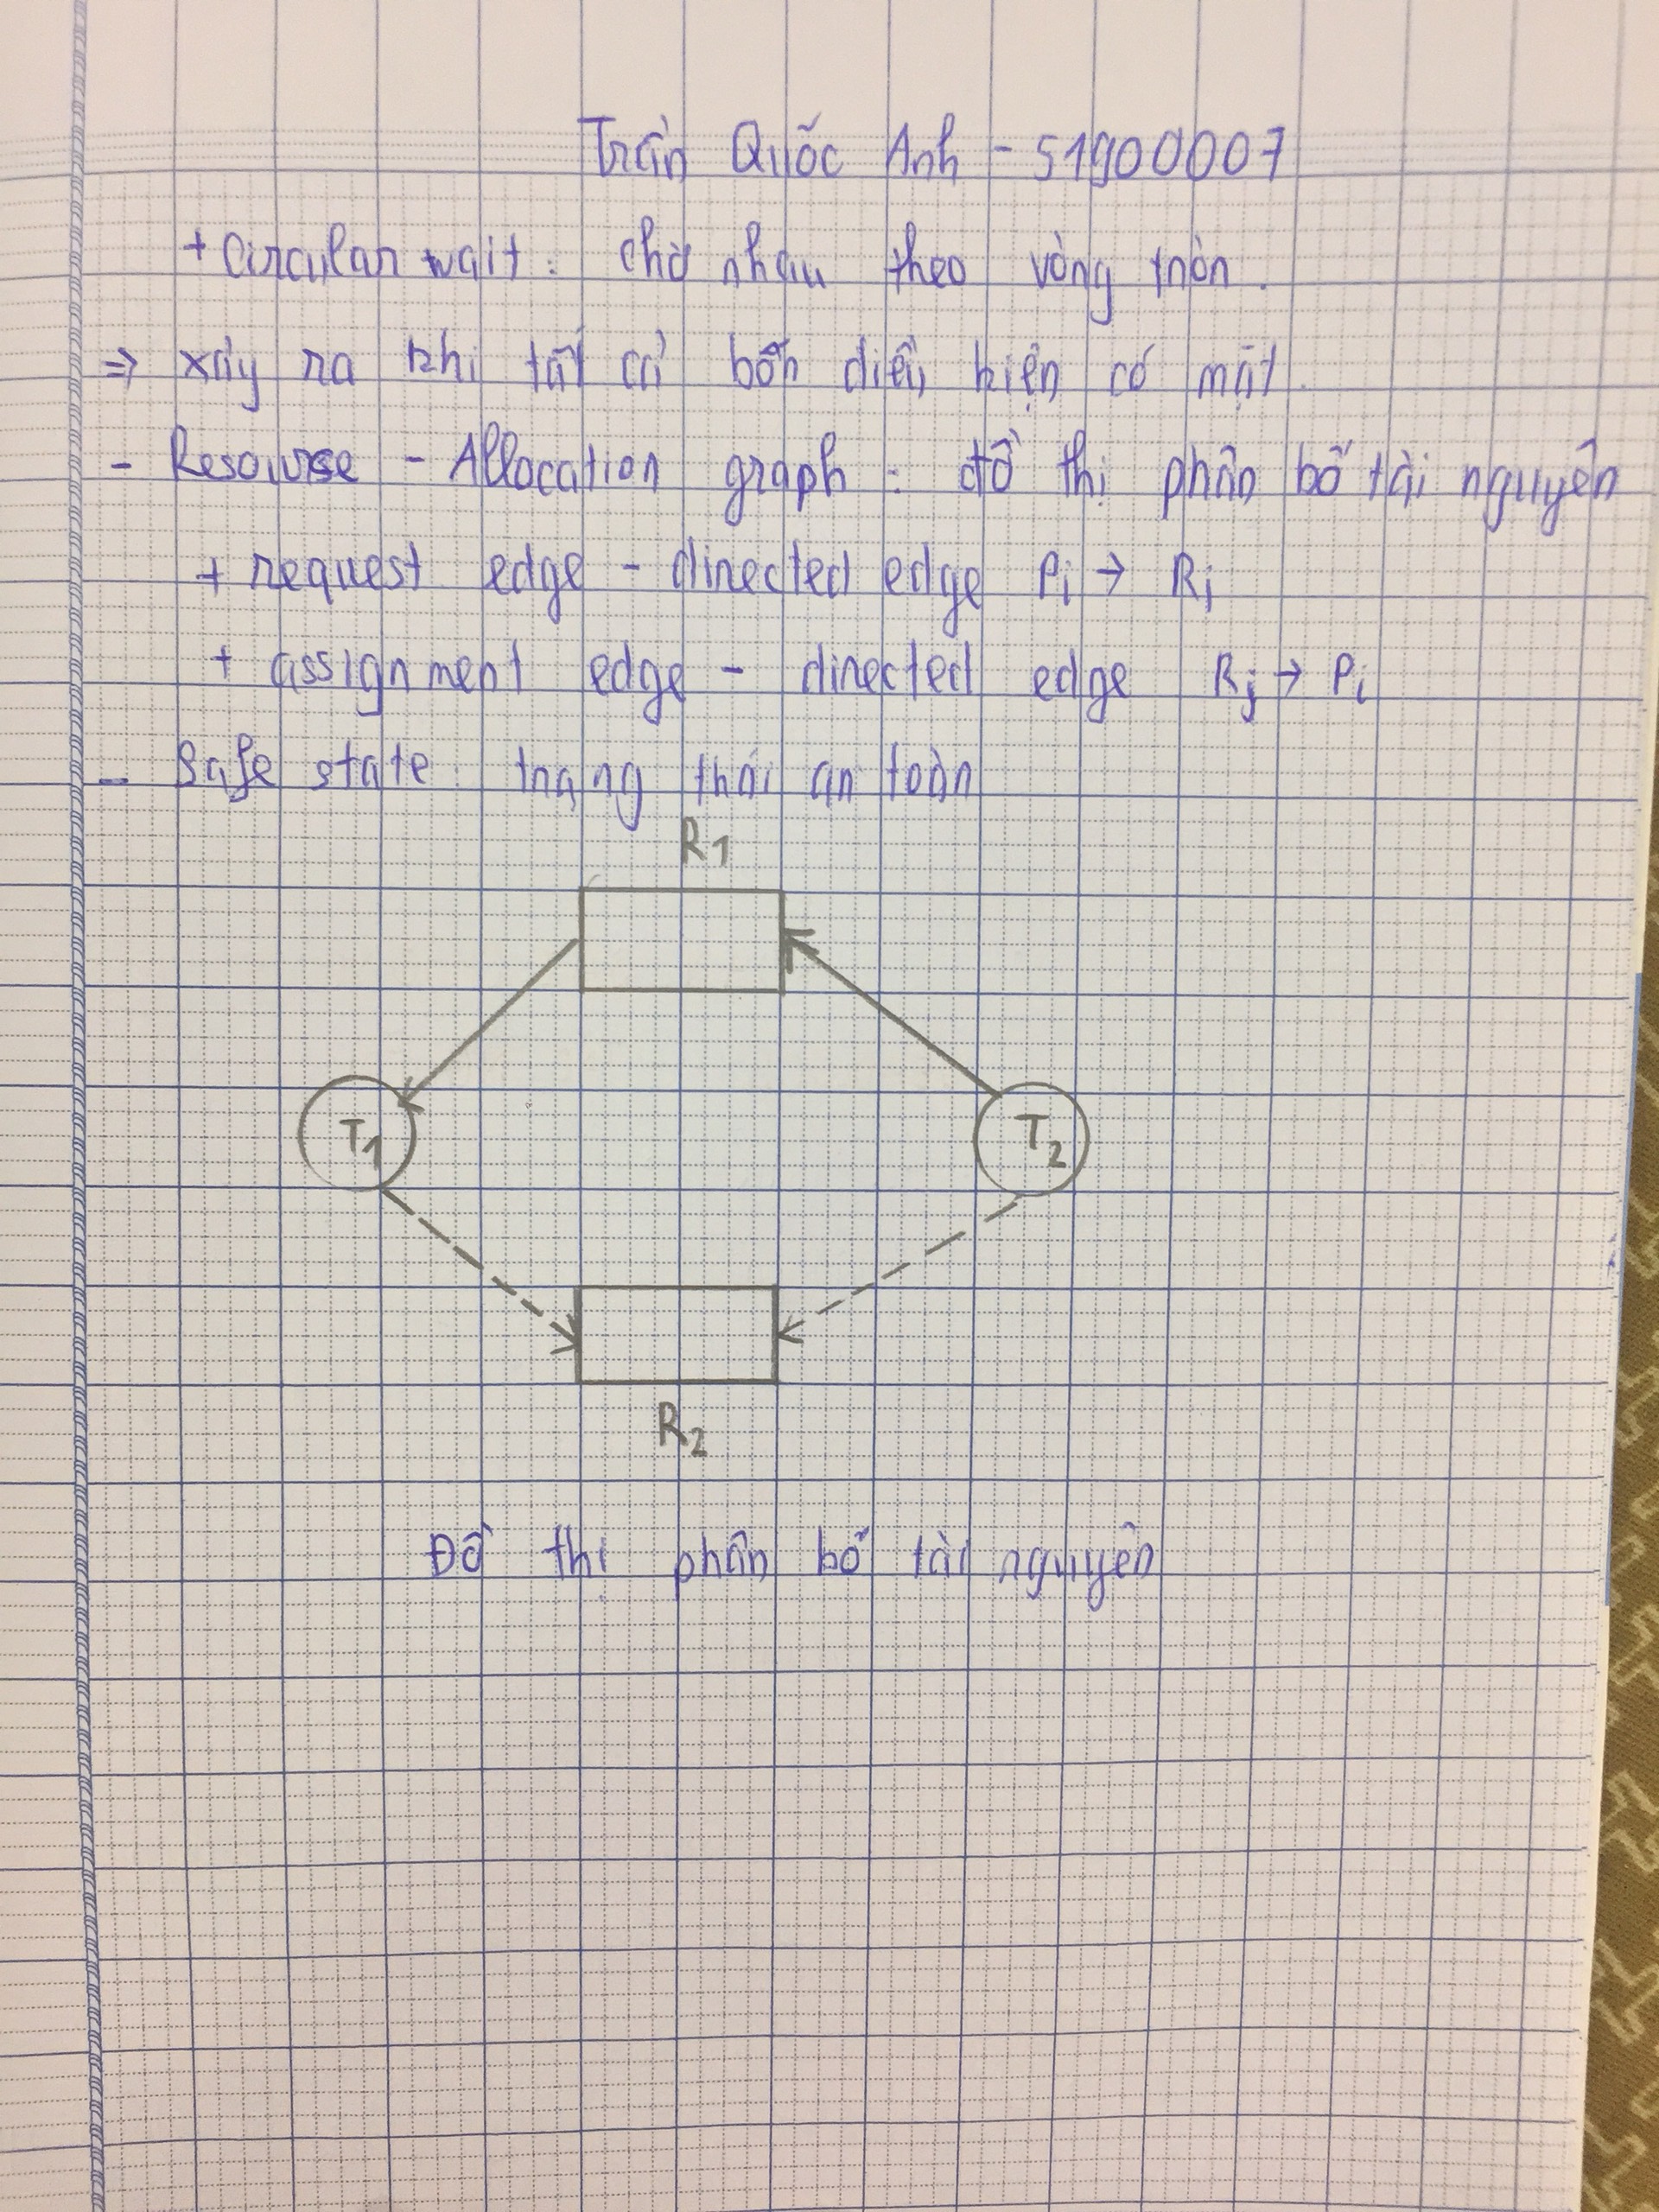 Trần Quốc Anh - 51900007
+ Circular wait: chờ nhau theo vòng tròn.
⇒ xảy ra khi tất cả bốn điều kiện có mặt.
- Resourse - Allocation graph: đồ thị phân bố tài nguyên
+ request edge - directed edge Pi → Rj
+ assignment edge - directed edge Rj → Pi
- Safe state: trạng thái an toàn
R1
T1 T2
R2
Đồ thị phân bố tài nguyên